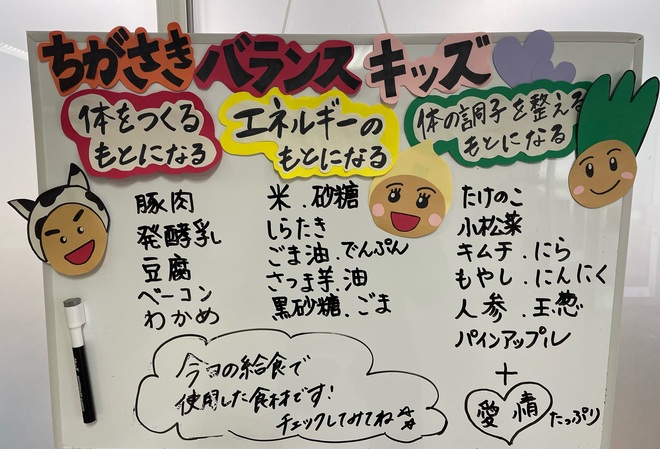 ちがさき バランス キッズ
体をつくる
もとになる
豚肉
発酵乳
豆腐
ベーコン
わかめ
エネルギーの
もとになる
米.砂糖
しらたき
ごま油.でんぷん
さつま芋.油
黒砂糖.ごま
体の調子を整える
もとになる
たけのこ
小松菜
キムチ.にら
もやし.にんにく
人参.玉葱
パインアップル
+
愛情たっぷり
今日の給食で
使用した食材です!
チェックしてみてね☆